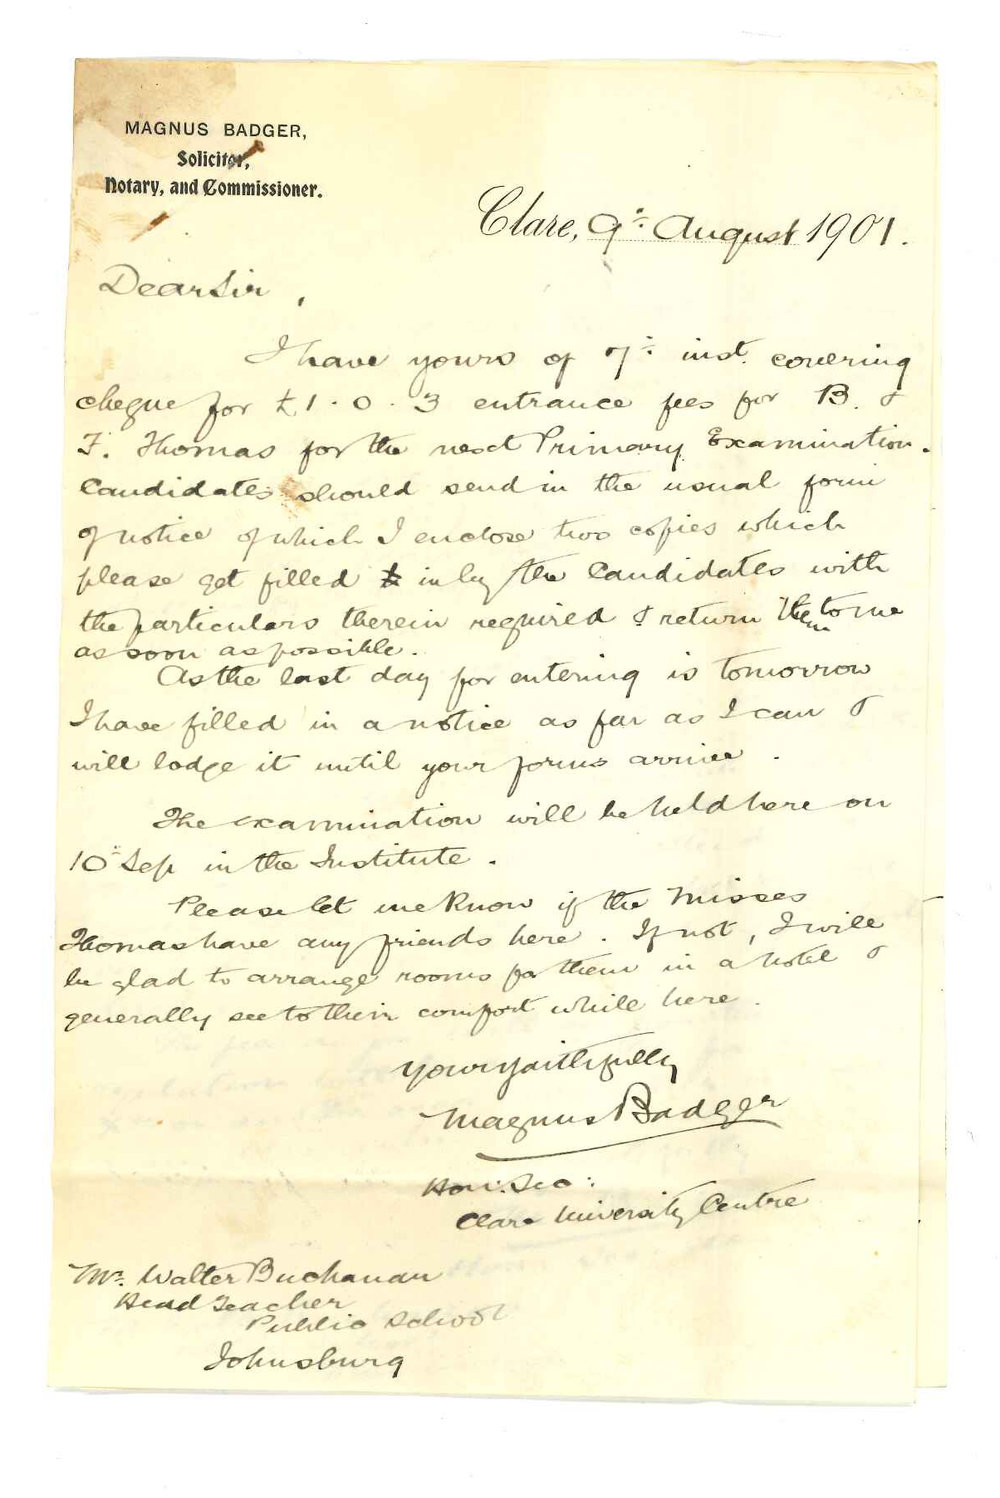 MAGNUS BADGER,
Solicitor,
Notary, and Commissioner.
Clare, 9th August 1901.
Dear Sir,
I have yours of 7th inst. covering
cheque for £1.0.3 entrance fees for B. &
F. Thomas for the next Primary Examination.
Candidates should send in the usual form
of notice of which I enclose two copies which
please get filled in by the Candidates with
the particulars therein required & return them to me
as soon as possible.
As the last day for entering is tomorrow
I have filled in a notice as far as I can &
will lodge it until your forms arrive.
The examination will be held here on
10th Sep in the Institute.
Please let me know if the Misses
Thomas have any friends here. If not, I will
be glad to arrange rooms for them in a hotel &
generally see to their comfort while here.
Yours faithfully
Magnus Badger
Hon: Sec:
Clare University Centre
Mr. Walter Buchanan
Head Teacher
Public School
Johnsburg